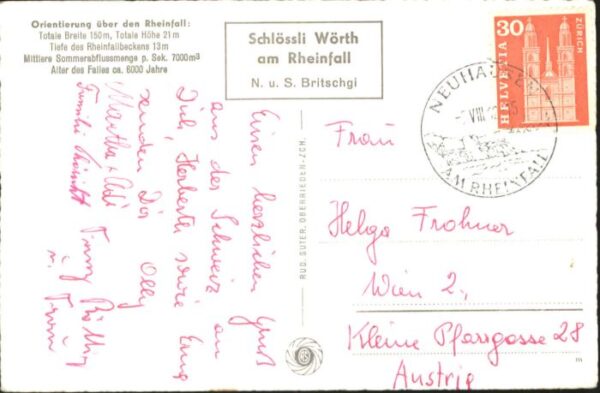 Orientierung über den Rheinfall:
Totale Breite 150 m, Totale Höhe 21 m
Tiefe des Rheinfallbeckens 13 m
Mittlere Sommerabflussmenge p. Sek. 7000m³
Alter des Falles ca. 6000 Jahre
Schlössli Wörth
am Rheinfall
N. u. S. Britschgi
HELVETIA 30 ZÜRICH
NEUHAUSEN
VIII
AM RHEINFALL
Einen herzlichen Gruß
aus der Schweiz an
Dich, Herberta sowie
senden Dir Olly
Martha
Familie
RUD. SUTER, OBERRIEDEN-ZCH.
Frau
Helga Frohner
Wien 2.,
Kleine Pfarrgasse 28
Austria